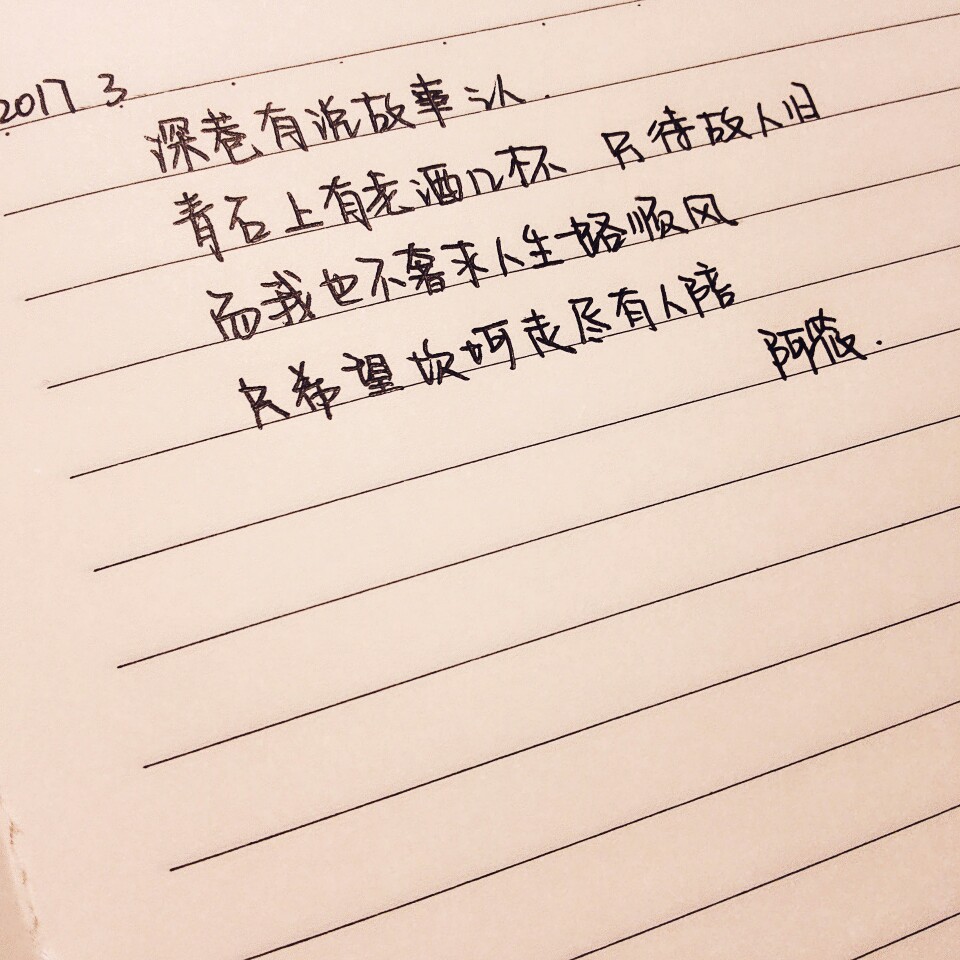 2017 3
深巷有说故事认.
青石上有老酒几杯 只待故人归
而我也不奢求人生一路顺风
只希望坎坷走尽有人陪
阿薇.